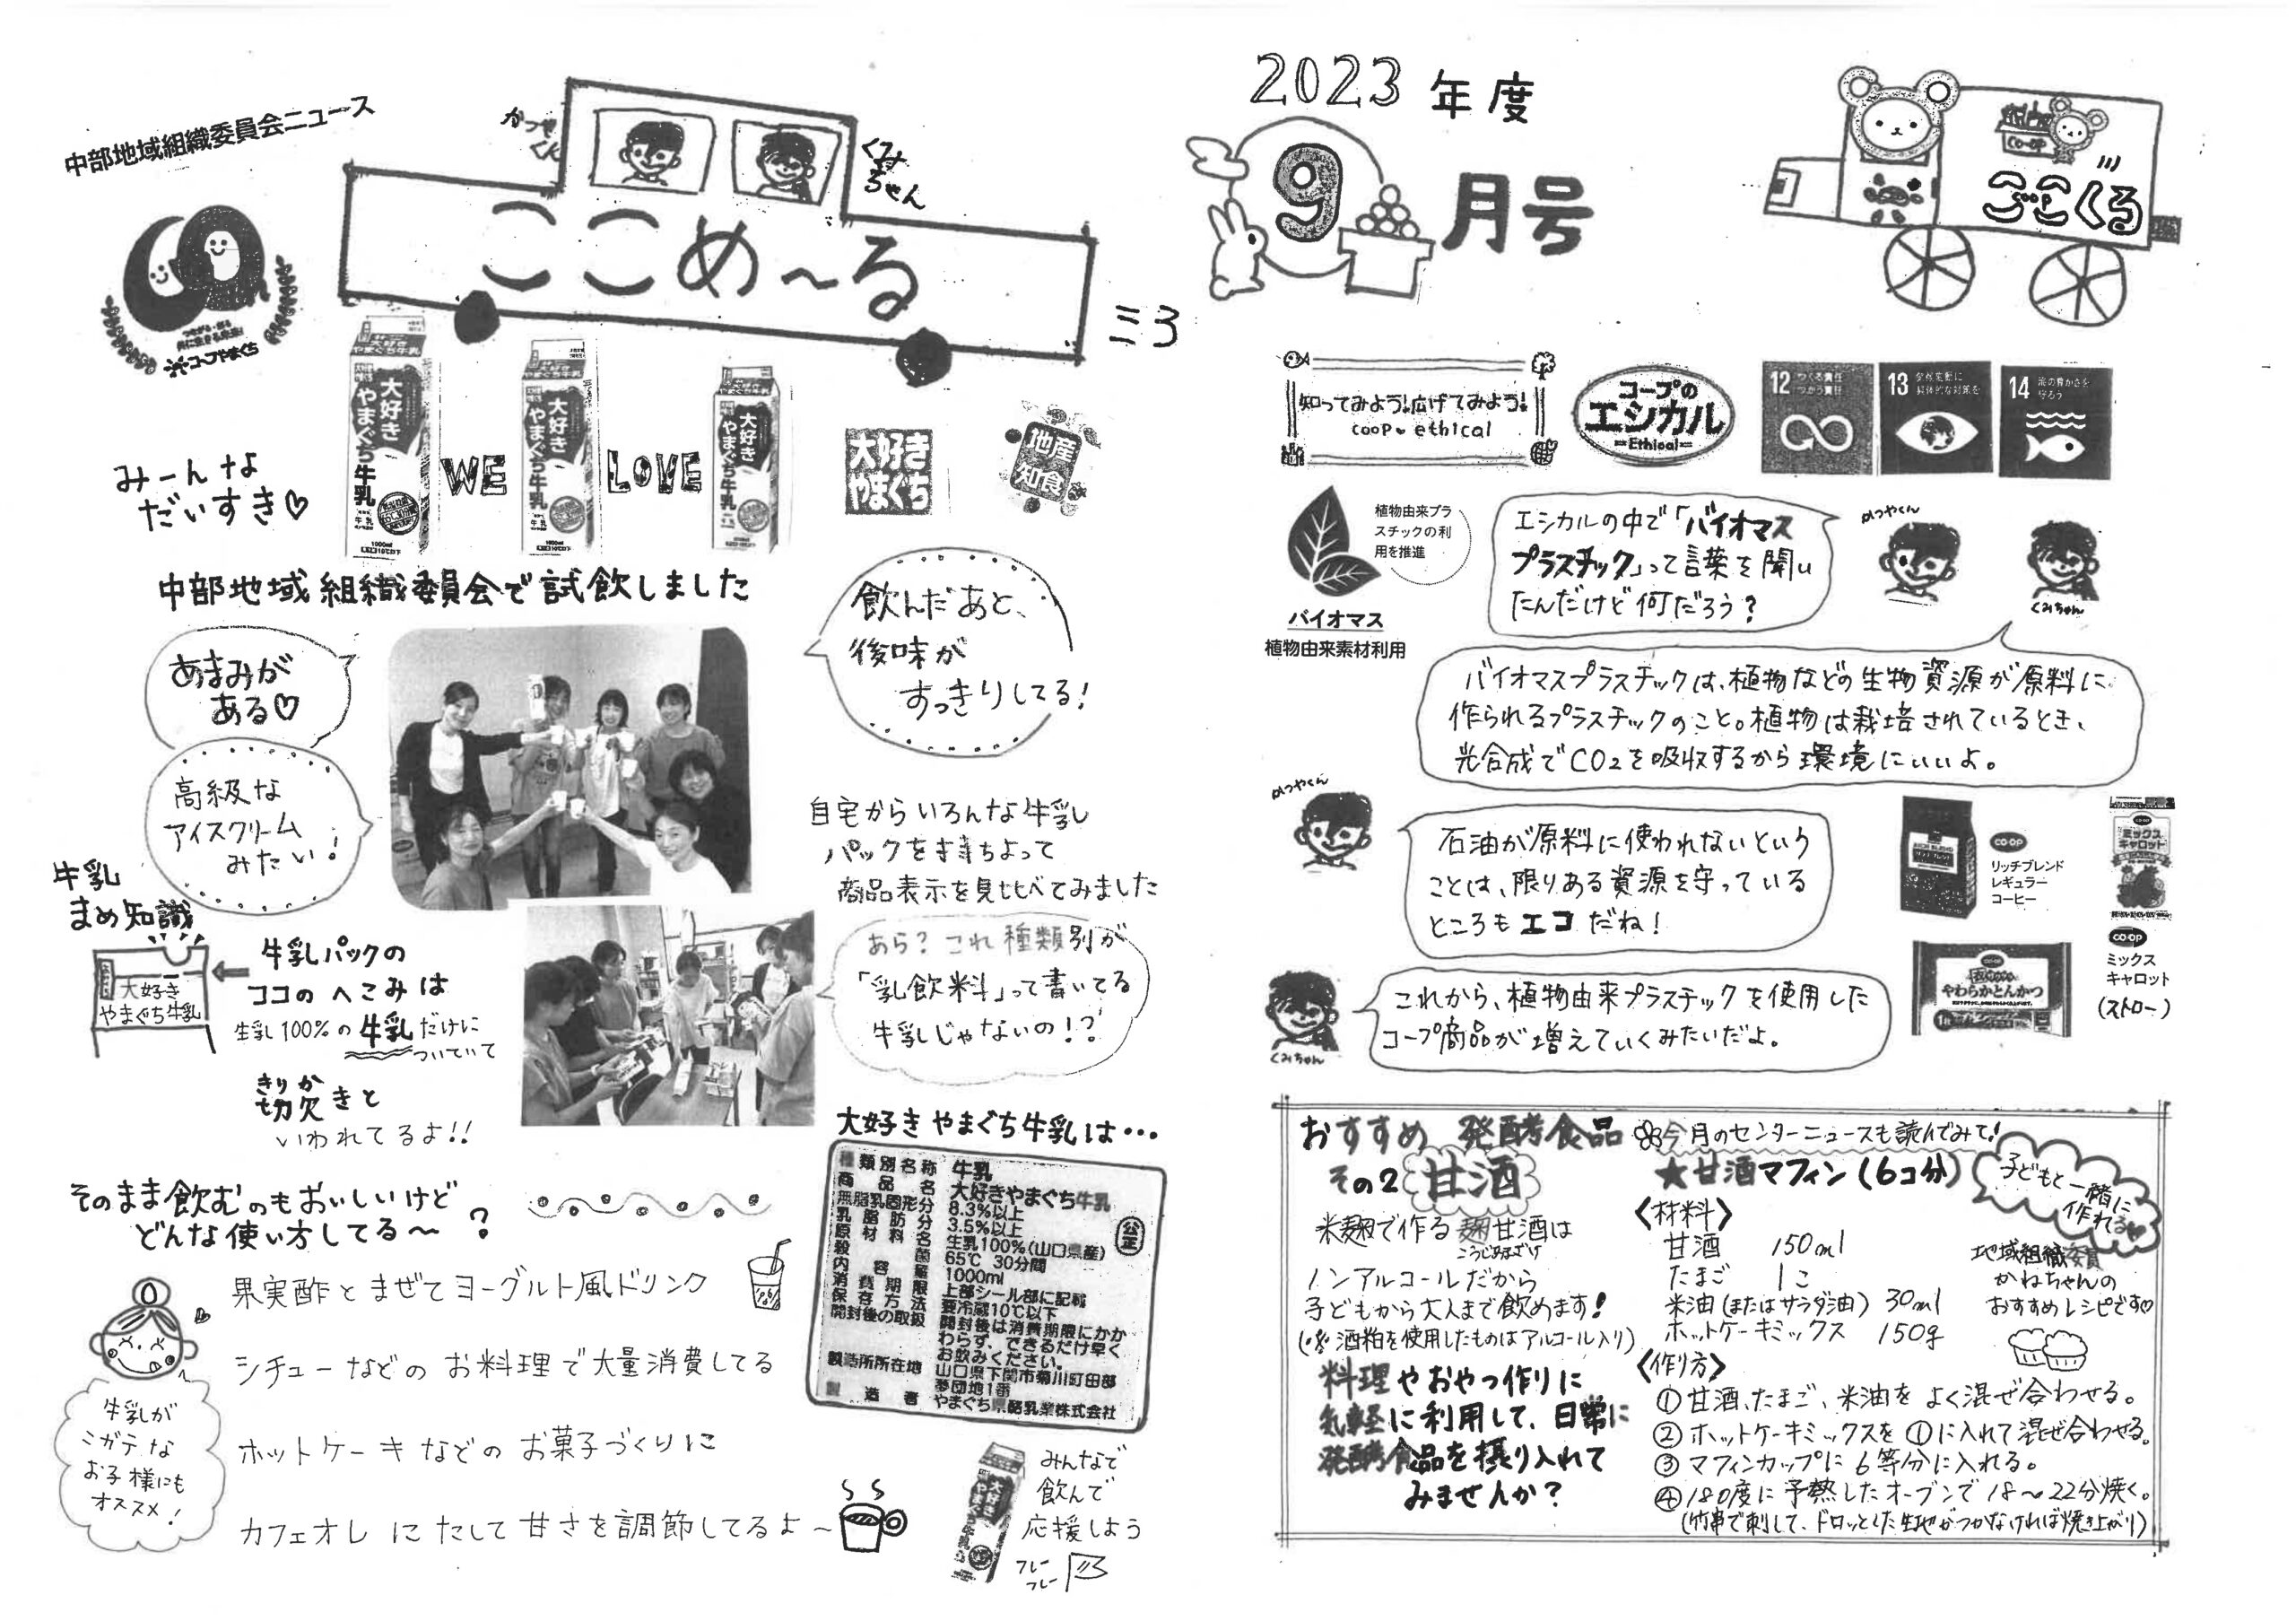 中部地域組織委員会ニュース
かつやくん
くみちゃん
ここめ～る
つながる・創る
共に生きる未来!
コープやまぐち
みーんな
だいすき♡
大好き
やまぐち牛乳
1000ml
WE
大好き
やまぐち牛乳
1000ml
LOVE
大好き
やまぐち牛乳
大好き
やまぐち
地産
知食
中部地域組織委員会で試飲しました
あまみが
ある♡
高級な
アイスクリーム
みたい!
飲んだあと、
後味が
すっきりしてる!
自宅からいろんな牛乳
パックを持ちよって
商品表示を見比べてみました
あら?これ種類別が
「乳飲料」って書いてる
牛乳じゃないの!?
牛乳
まめ知識
大好き
やまぐち牛乳
牛乳パックの
ココのへこみは
生乳100%の牛乳だけに
ついていて
きりか
切欠きと
いわれてるよ!!
大好きやまぐち牛乳は…
種類別名称 牛乳
商品名 大好きやまぐち牛乳
無脂乳固形分 8.3%以上
乳脂肪分 3.5%以上
原材料名 生乳100%(山口県産)
殺菌 65℃ 30分間
内容量 1000ml
消費期限 上部シール部に記載
保存方法 要冷蔵10℃以下
開封後の取扱 開封後は消費期限にかか
わらず、できるだけ早く
お飲みください。
製造所所在地 山口県下関市菊川町田部
夢団地1番
製造者 やまぐち県酪乳業株式会社
公正
そのまま飲むのもおいしいけど
どんな使い方してる～?
果実酢とまぜてヨーグルト風ドリンク
シチューなどのお料理で大量消費してる
ホットケーキなどのお菓子づくりに
カフェオレにたして甘さを調節してるよ～
牛乳が
ニガテな
お子様にも
オススメ!
大好き
やまぐち牛乳
みんなで
飲んで
応援しよう
フレー
フレー
2023年度
9月号
CO・OP
ここくる
知ってみよう!広げてみよう!
coop♥ethical
コープの
エシカル
Ethical
12 つくる責任
つかう責任
13 気候変動に
具体的な対策を
14 海の豊かさを
守ろう
植物由来プラ
スチックの利
用を推進
バイオマス
植物由来素材利用
エシカルの中で「バイオマス
プラスチック」って言葉を聞い
たんだけど何だろう?
かつやくん
くみちゃん
バイオマスプラスチックは、植物などの生物資源が原料に
作られるプラスチックのこと。植物は栽培されているとき、
光合成でCO2を吸収するから環境にいいよ。
かつやくん
石油が原料に使われないという
ことは、限りある資源を守っている
ところもエコだね!
くみちゃん
これから、植物由来プラスチックを使用した
コープ商品が増えていくみたいだよ。
RICH BLEND
リッチブレンド
CO・OP
リッチブレンド
レギュラー
コーヒー
ミックス
キャロット
CO・OP
ミックス
キャロット
(ストロー)
やわらかとんかつ
おすすめ 発酵食品
その2 甘酒
※今月のセンターニュースも読んでみて!
米麹で作る麹甘酒は
こうじあまざけ
ノンアルコールだから
子どもから大人まで飲めます!
(※酒粕を使用したものはアルコール入り)
料理やおやつ作りに
気軽に利用して、日常に
発酵食品を摂り入れて
みませんか?
★甘酒マフィン(6コ分)
子どもと一緒に
作れる♥
〈材料〉
甘酒 150ml
たまご 1こ
米油(またはサラダ油) 30ml
ホットケーキミックス 150g
地域組織委員
かねちゃんの
おすすめレシピです♡
〈作り方〉
①甘酒、たまご、米油をよく混ぜ合わせる。
②ホットケーキミックスを①に入れて混ぜ合わせる。
③マフィンカップに6等分に入れる。
④180度に予熱したオーブンで18～22分焼く。
(竹串で刺して、ドロッとした生地がつかなければ焼き上がり)